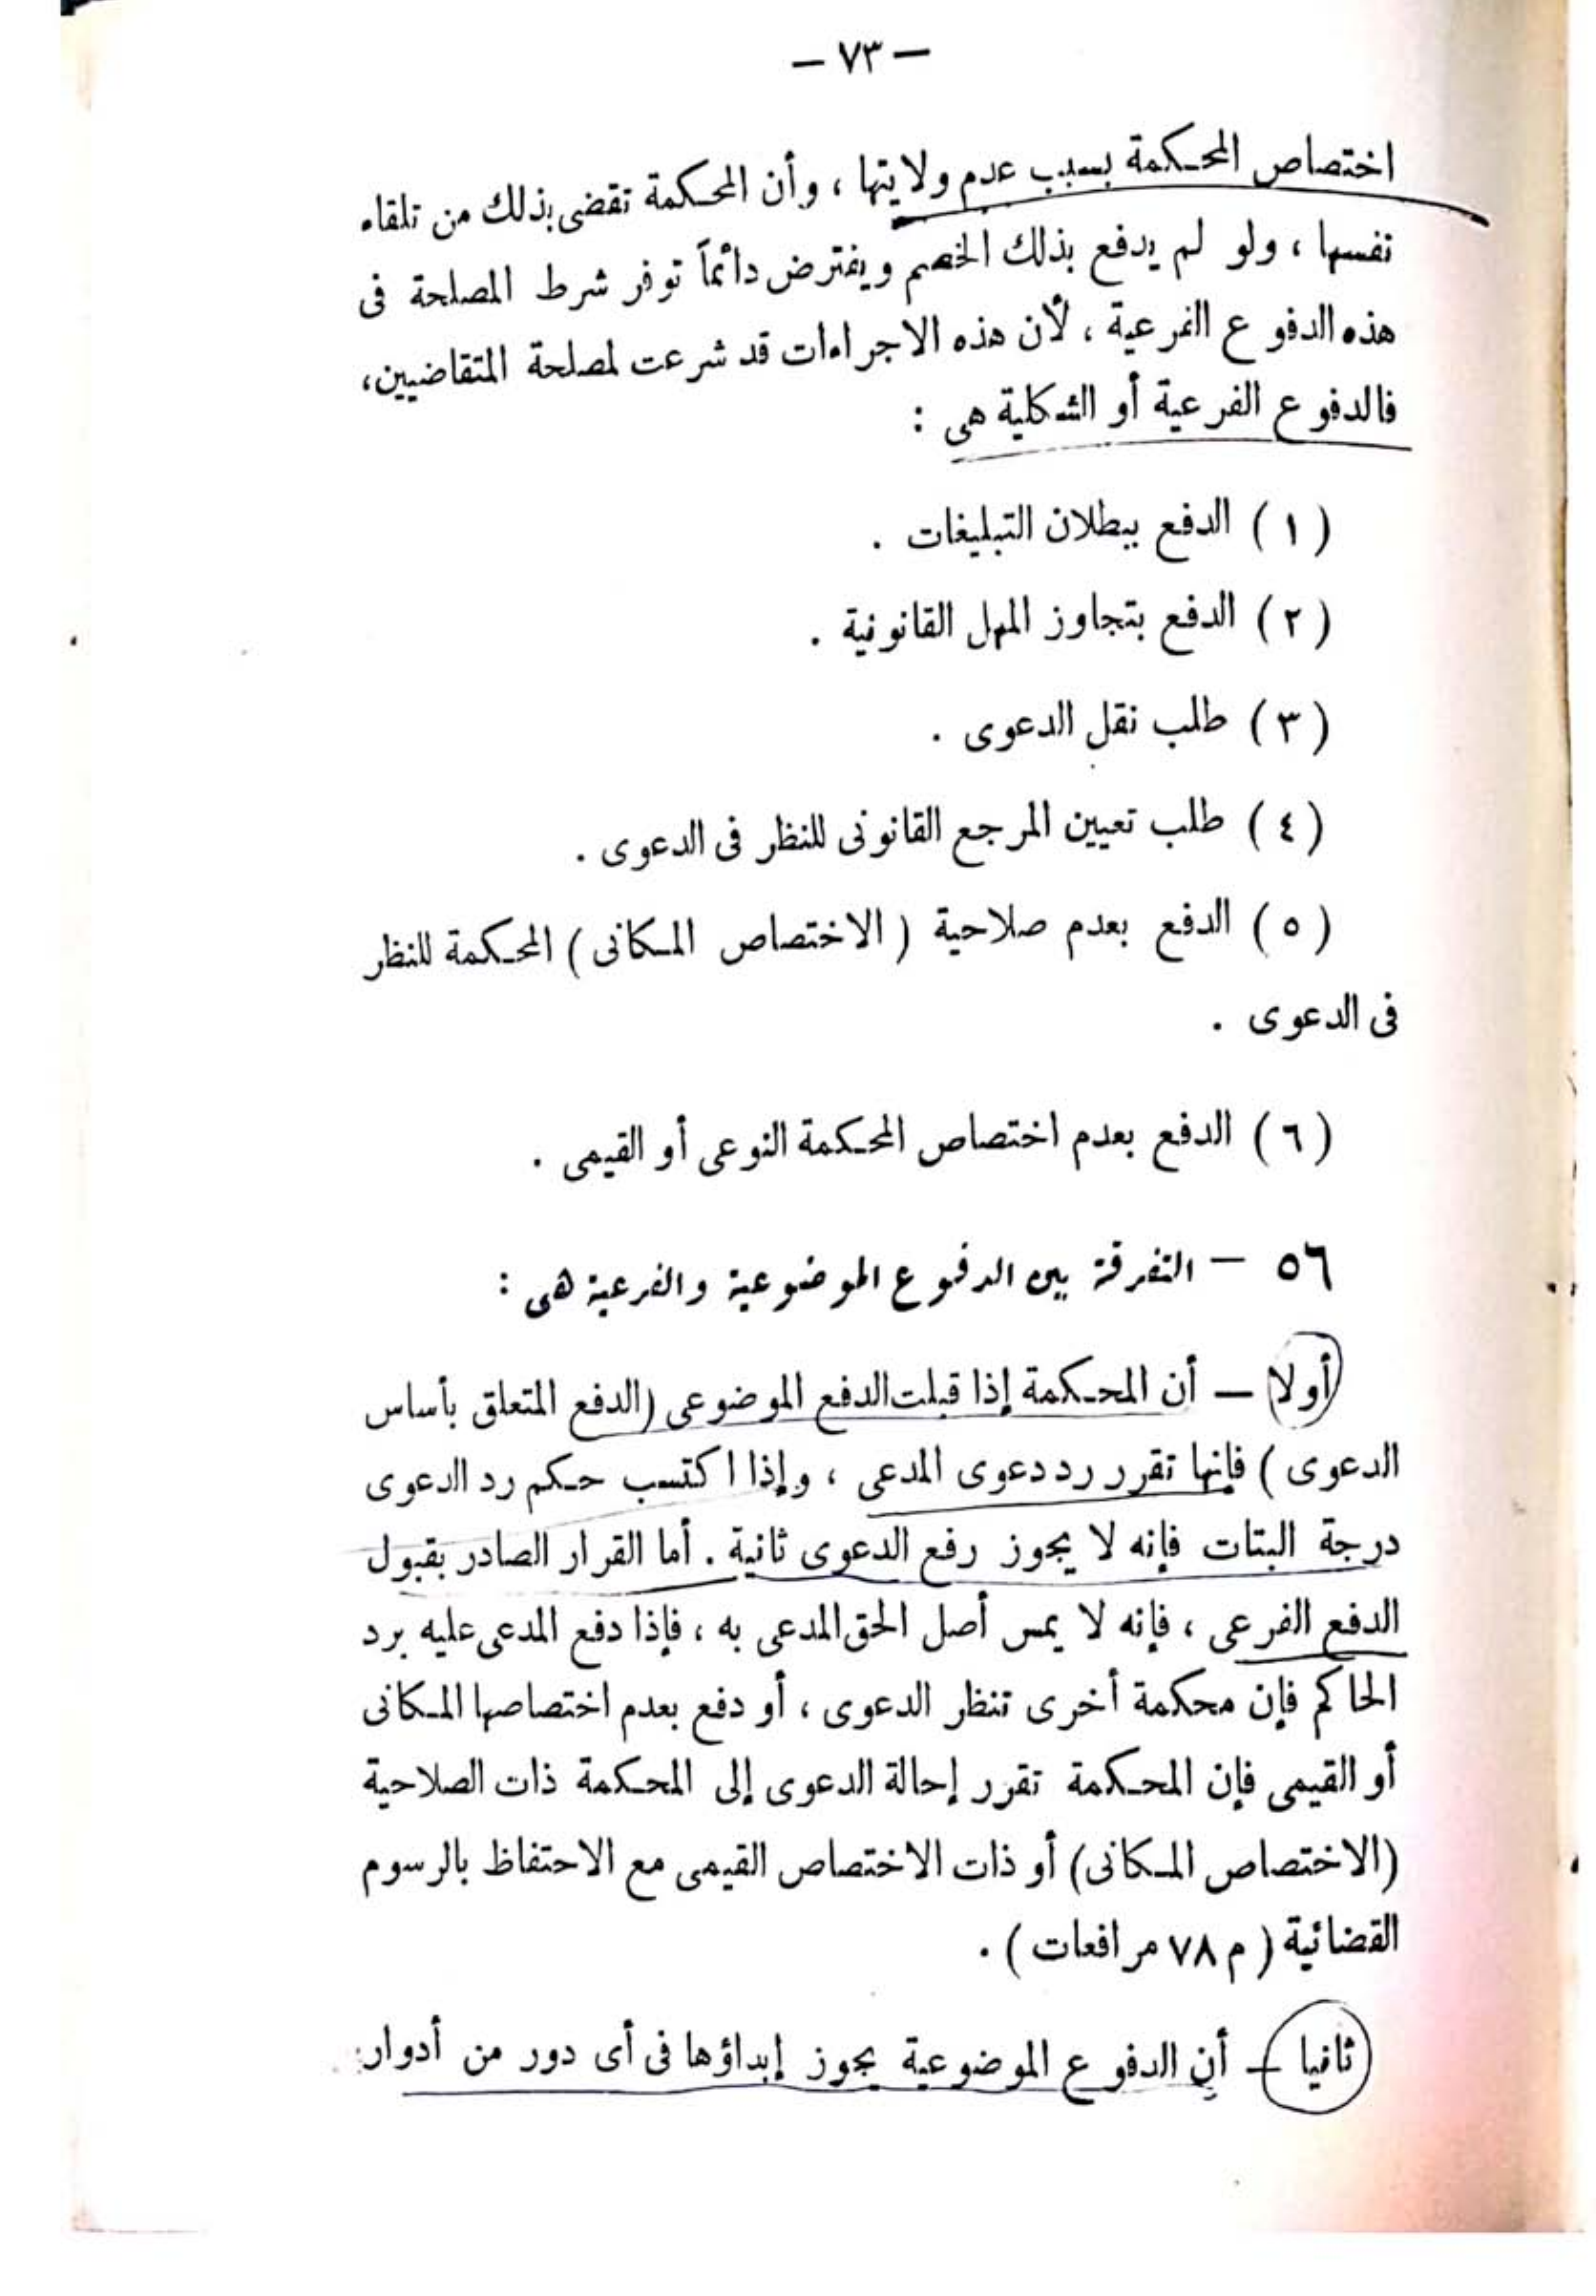 — ٧٣ —
اختصاص المحكمة بسبب عدم ولايتها ، وأن المحكمة تقضى بذلك من تلقاء
نفسها ، ولو لم يدفع بذلك الخصم ويفترض دائماً توفر شرط المصلحة فى
هذه الدفوع الفرعية ، لأن هذه الاجراءات قد شرعت لمصلحة المتقاضيين،
فالدفوع الفرعية أو الشكلية هى :
( ١ ) الدفع ببطلان التبليغات .
( ٢ ) الدفع بتجاوز المهل القانونية .
( ٣ ) طلب نقل الدعوى .
( ٤ ) طلب تعيين المرجع القانونى للنظر فى الدعوى .
( ٥ ) الدفع بعدم صلاحية ( الاختصاص المكانى ) المحكمة للنظر
فى الدعوى .
( ٦ ) الدفع بعدم اختصاص المحكمة النوعى أو القيمى .
٥٦ — التفرقة بين الدفوع الموضوعية والفرعية هى :
أولا — أن المحكمة إذا قبلت الدفع الموضوعى (الدفع المتعلق بأساس
الدعوى ) فإنها تقرر رد دعوى المدعى ، وإذا اكتسب حكم رد الدعوى
درجة البتات فإنه لا يجوز رفع الدعوى ثانية . أما القرار الصادر بقبول
الدفع الفرعى ، فإنه لا يمس أصل الحق المدعى به ، فإذا دفع المدعى عليه برد
الحاكم فإن محكمة أخرى تنظر الدعوى ، أو دفع بعدم اختصاصها المكانى
أو القيمى فإن المحكمة تقرر إحالة الدعوى إلى المحكمة ذات الصلاحية
(الاختصاص المكانى) أو ذات الاختصاص القيمى مع الاحتفاظ بالرسوم
القضائية ( م ٧٨ مرافعات ) .
ثانيا — أن الدفوع الموضوعية يجوز إبداؤها فى أى دور من أدوار